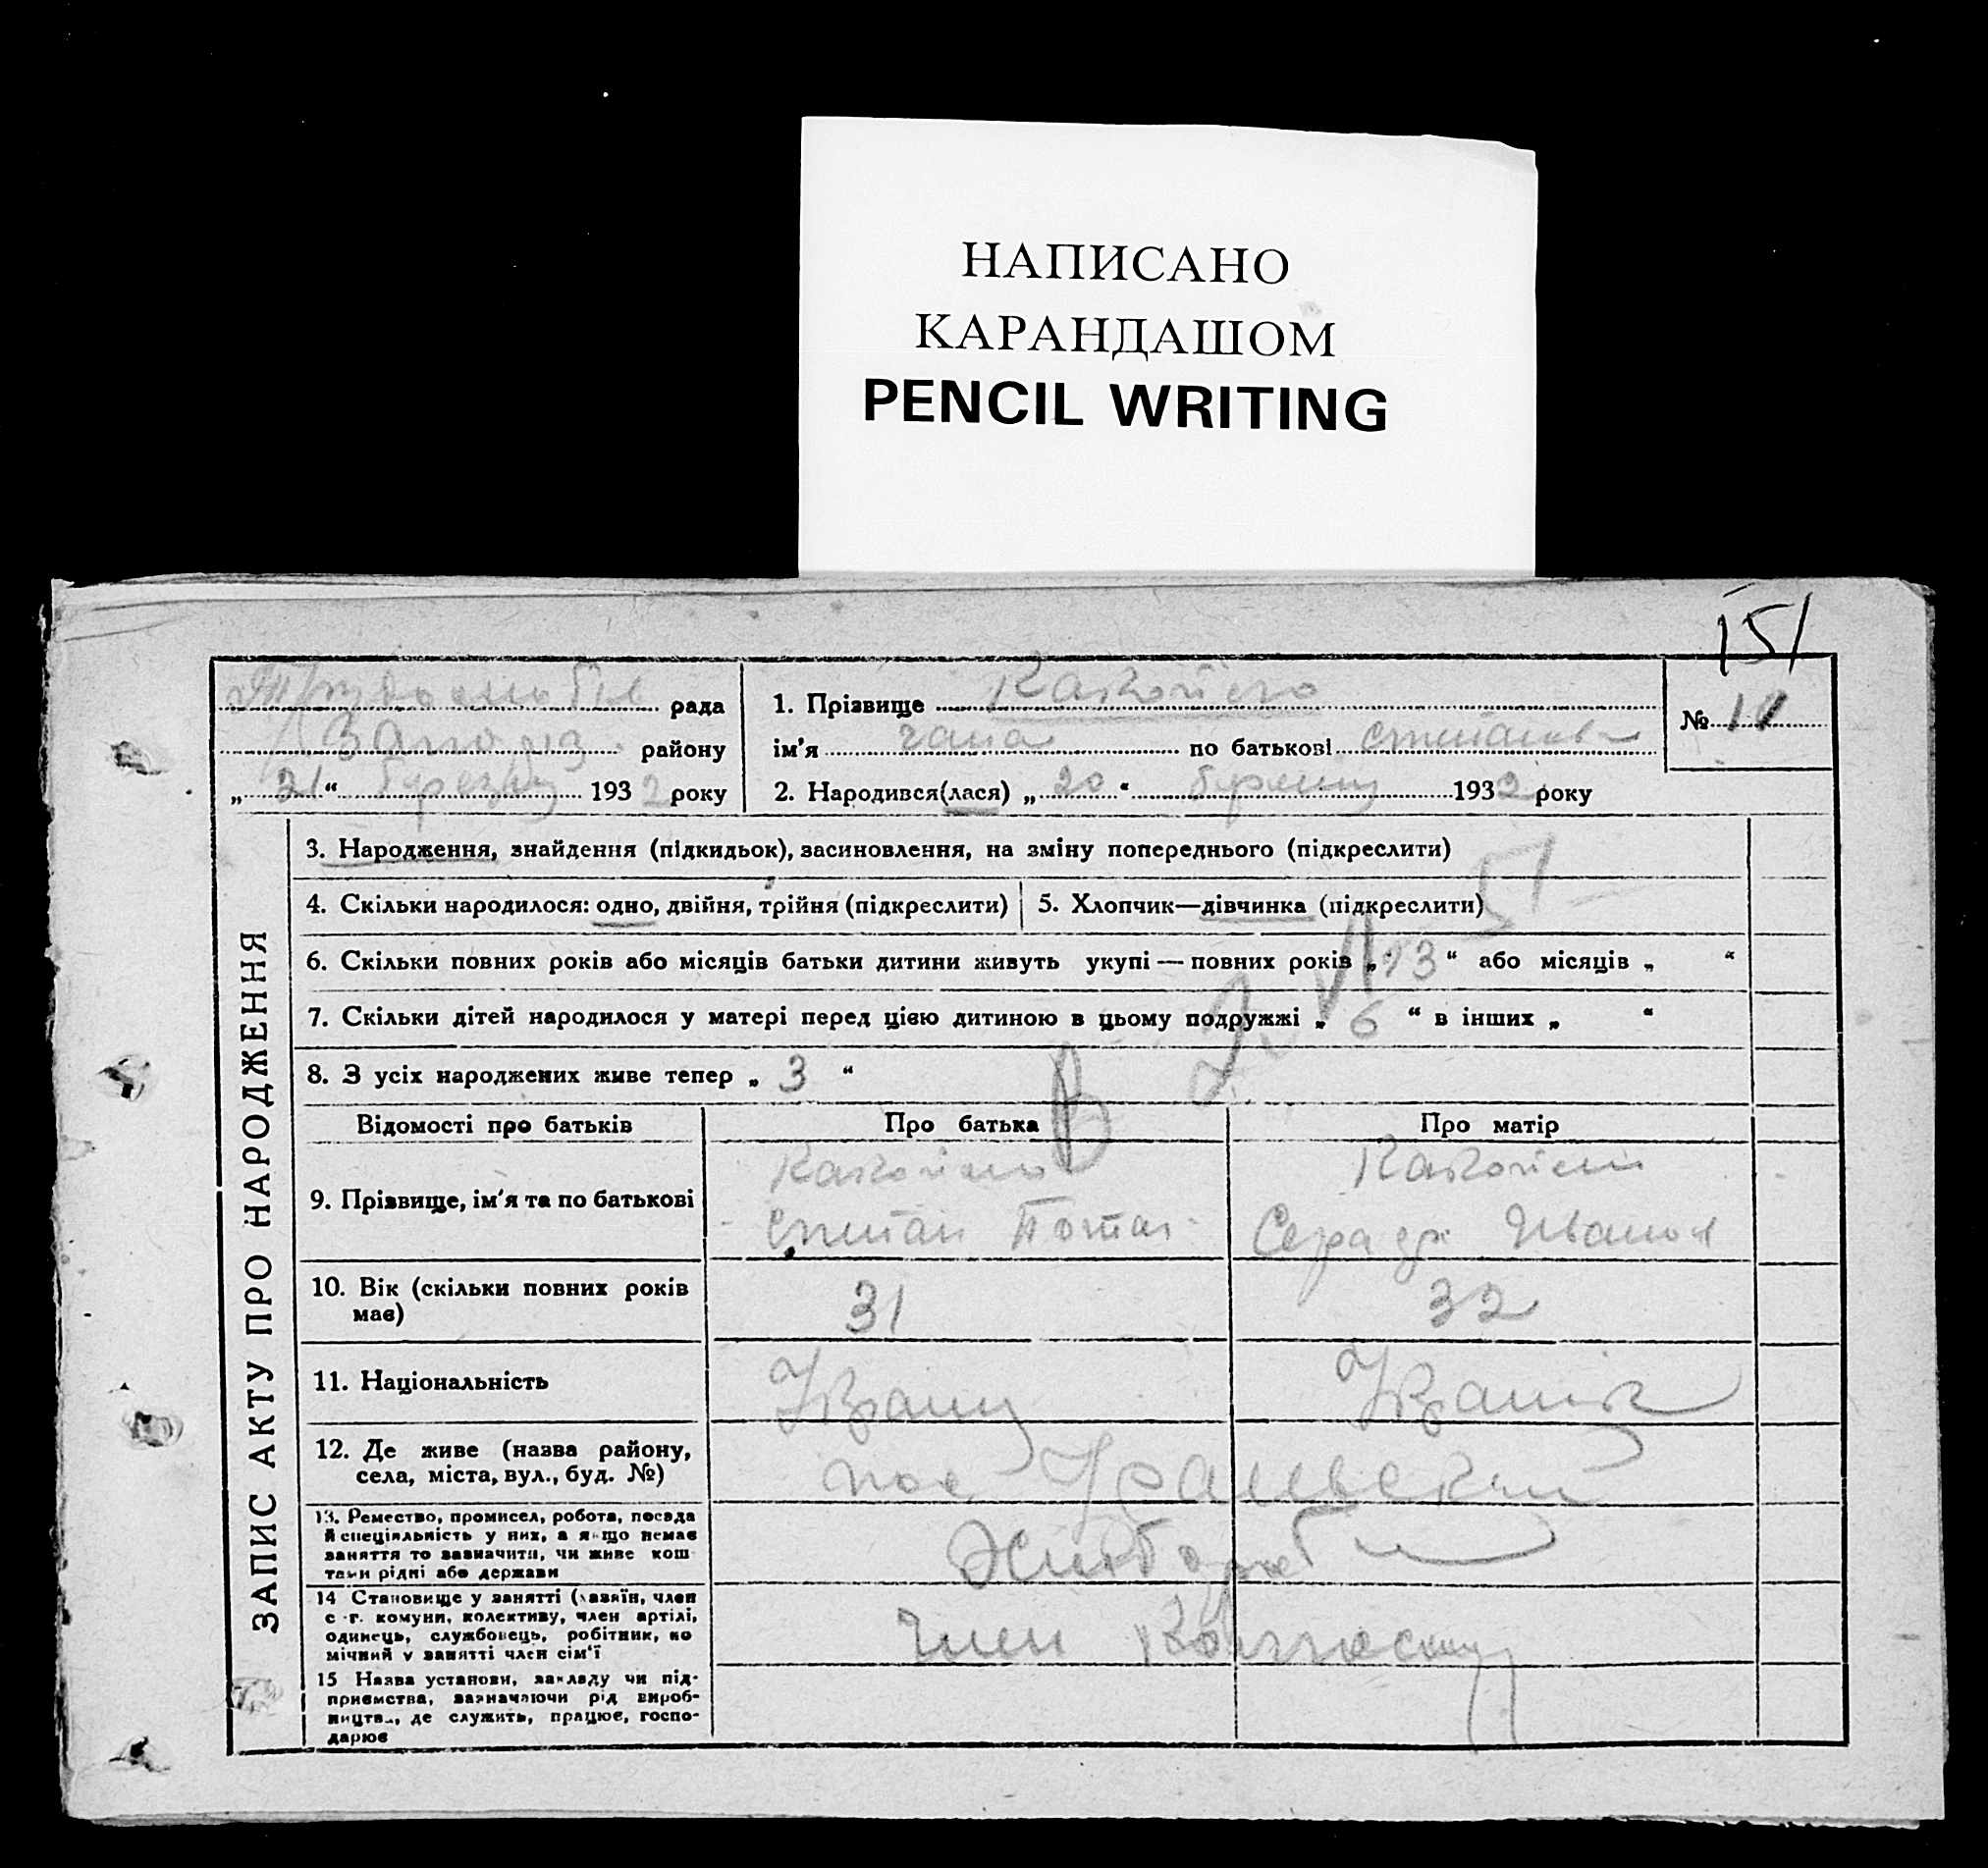 НАПИСАНО
КАРАНДАШОМ
PENCIL WRITING
151
рада
1. Прізвище
№ 11
району
ім'я по батькові
„ 31 “ березня 1932 року
2. Народився(лася) „ 20 “ березня 1932 року
ЗАПИС АКТУ ПРО НАРОДЖЕННЯ
3. Народження, знайдення (підкидьок), засиновлення, на зміну попереднього (підкреслити)
4. Скільки народилося: одно, двійня, трійня (підкреслити)
5. Хлопчик—дівчинка (підкреслити)
6. Скільки повних років або місяців батьки дитини живуть укупі — повних років „ 13 “ або місяців „ “
7. Скільки дітей народилося у матері перед цією дитиною в цьому подружжі „ 6 “ в інших „ “
8. З усіх народжених живе тепер „ 3 “
Відомості про батьків
Про батька
Про матір
9. Прізвище, ім'я та по батькові
Степан
Іванов
10. Вік (скільки повних років
має)
31
32
11. Національність
Україн
12. Де живе (назва району,
села, міста, вул., буд. №)
пос
13. Ремество, промисел, робота, посада
й спеціяльність у них, а якщо немає
заняття то зазначити, чи живе кош
тами рідні або держави
Хлібороб
14 Становище у занятті (хазяїн, член
с.-г. комуни, колективу, член артілі,
одинець, службовець, робітник, по
мічний у занятті член сім'ї
член Колгоспу
15 Назва установи, закладу чи під-
приємства, зазначаючи рід вироб-
ництва, де служить, працює, госпо-
дарює